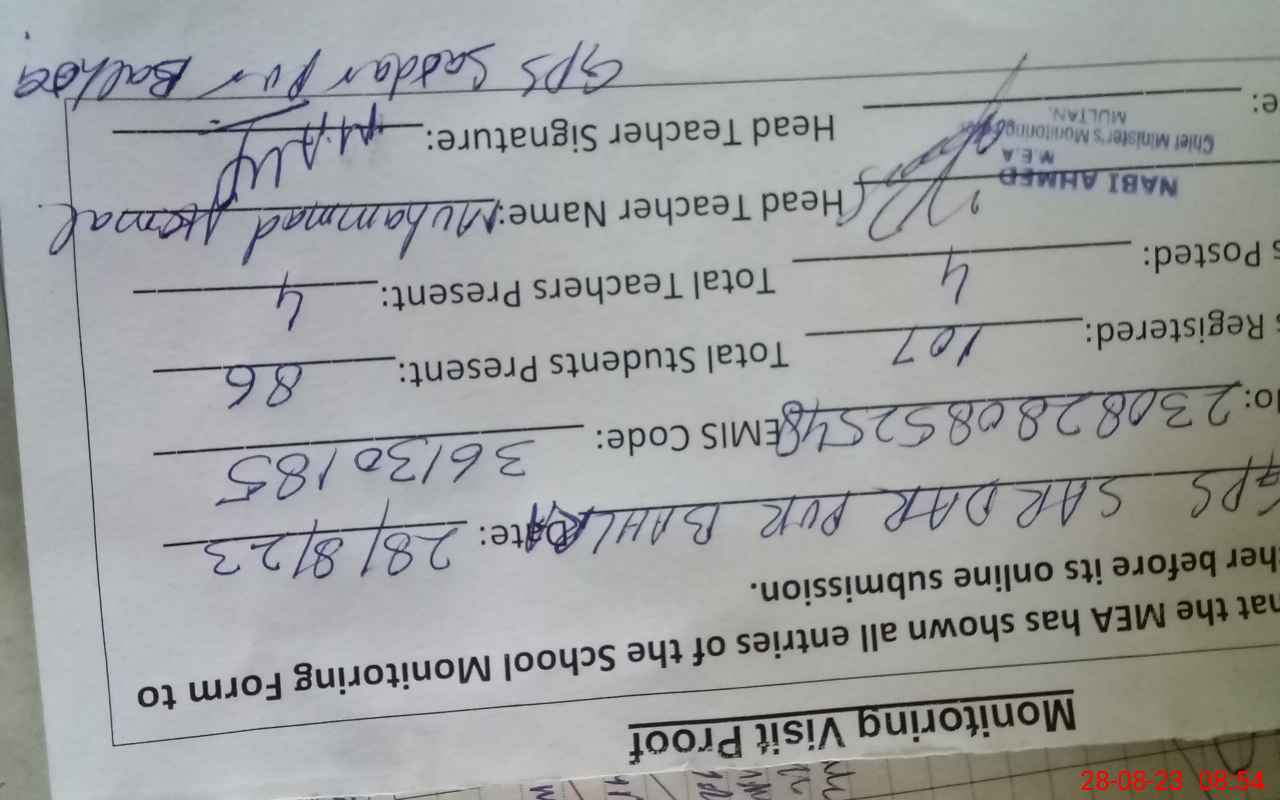 Monitoring Visit Proof
hat the MEA has shown all entries of the School Monitoring Form to
her before its online submission.
GPS SARDAR PUR BAHLRA Date: 28/8/23
No: 2308280852548 EMIS Code: 36130185
s Registered: 107 Total Students Present: 86
s Posted: 4 Total Teachers Present: 4
Head Teacher Name: Muhammad Akmal
NABI AHMED
M.E.A
Chief Minister's Monitoring
MULTAN.
e: Head Teacher Signature:
GPS Saddar Pur
28-08-23 08:54